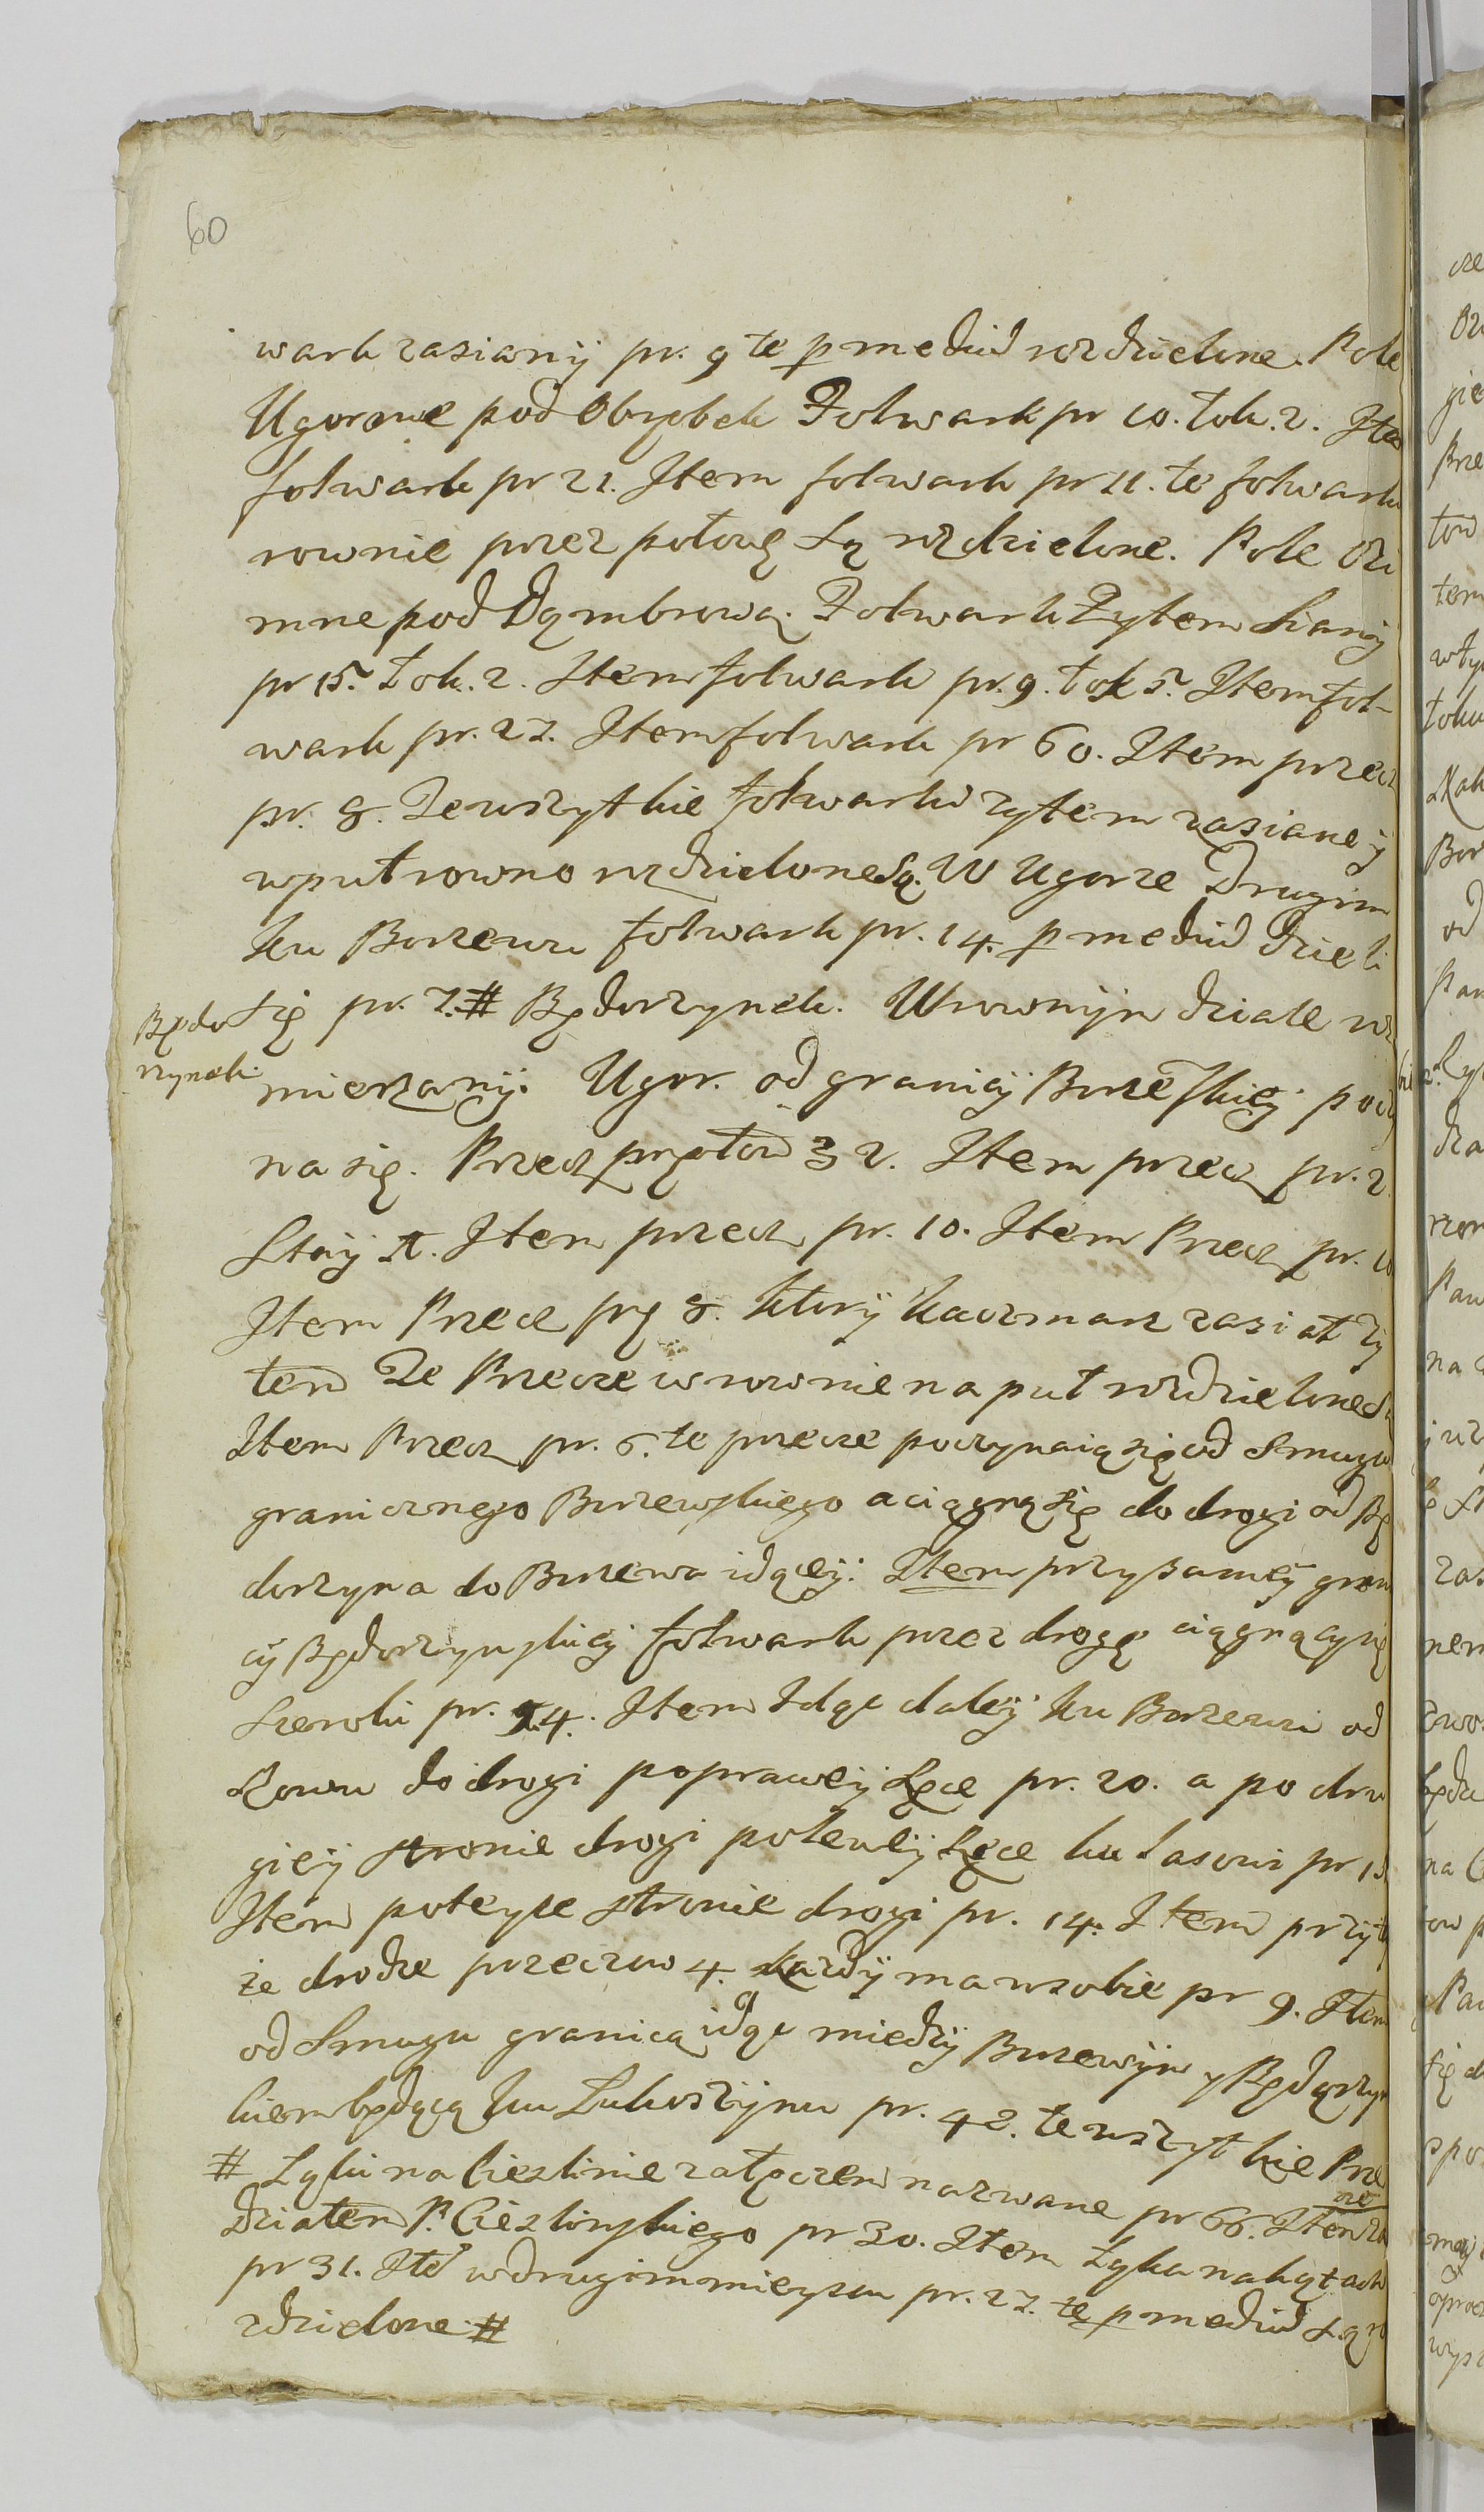 60
wark zasiany pr. 9 te p mediu rozdzielone. Pole
Ugorowe pod Obrębek Folwark pr 10. łok. 2. Ite
folwark pr 21. Item folwark pr 11. te folwarki
rownie przez połowę są rozdzielone. Pole Ozi
mne pod Dąmbrową. Folwark Żytem siany
pr 15. łok. 2. Item folwark pr. 9. łok 5. Item fol-
wark pr. 27. Item folwark pr 60. Item przecz
pr. 8. Te wszytkie folwarki zytem zasiane y
wpuł rowno rozdzielone są. W Ugorze Drugim
ku Borzewu folwark pr. 14. p mediu dzieli
Się pr. 7. # Będorzynek. W rownym dziale roz
Będo
rzynek
mierzany. Ugor. od granicy Borzeskiey poczy
na się. Przecz pręтоw 32. Item przecz pr. 2
Item przecz pr. 10. Item Przecz pr. 10
Item Przecz prę 8. ktory kaczmarz zasiał ży
tem Te Przecze w rownie na puł rozdzielone są
Item Przecz pr. 6. te przecze poczynaią się od Smugu
granicznego Borzewskiego a ciągną się do drogi od Bę
dorzyna do Borzewa idącey. Item przy samey grani
cy Będorzynskiey folwark przez drogę ciągnący się
Szeroki pr. 54. Item Idąc daley ku Borzewu od
Rowu do drogi poprawey Ręce pr. 20. a po dru
giey stronie drogi polewey Ręce ku Lasowi pr 15
Item poteyże stronie drogi pr. 14. Item przy tey
że drodze przeczow 4. każdy ma w sobie pr 9. Item
od Smugu granicą idąc miedzy Borzewym y Będorzyn
kiem będącą ku Lukoszynu pr. 42. te wszytkie Prze
cze
# Łąki na Cieslinie załęczem nazwane pr 66. Item za
działem P. Cieslinskiego pr 30. Item Łąka na kątach
pr 31. Ite w drugim mieyscu pr. 27. te p mediu są ro
zdzielone #